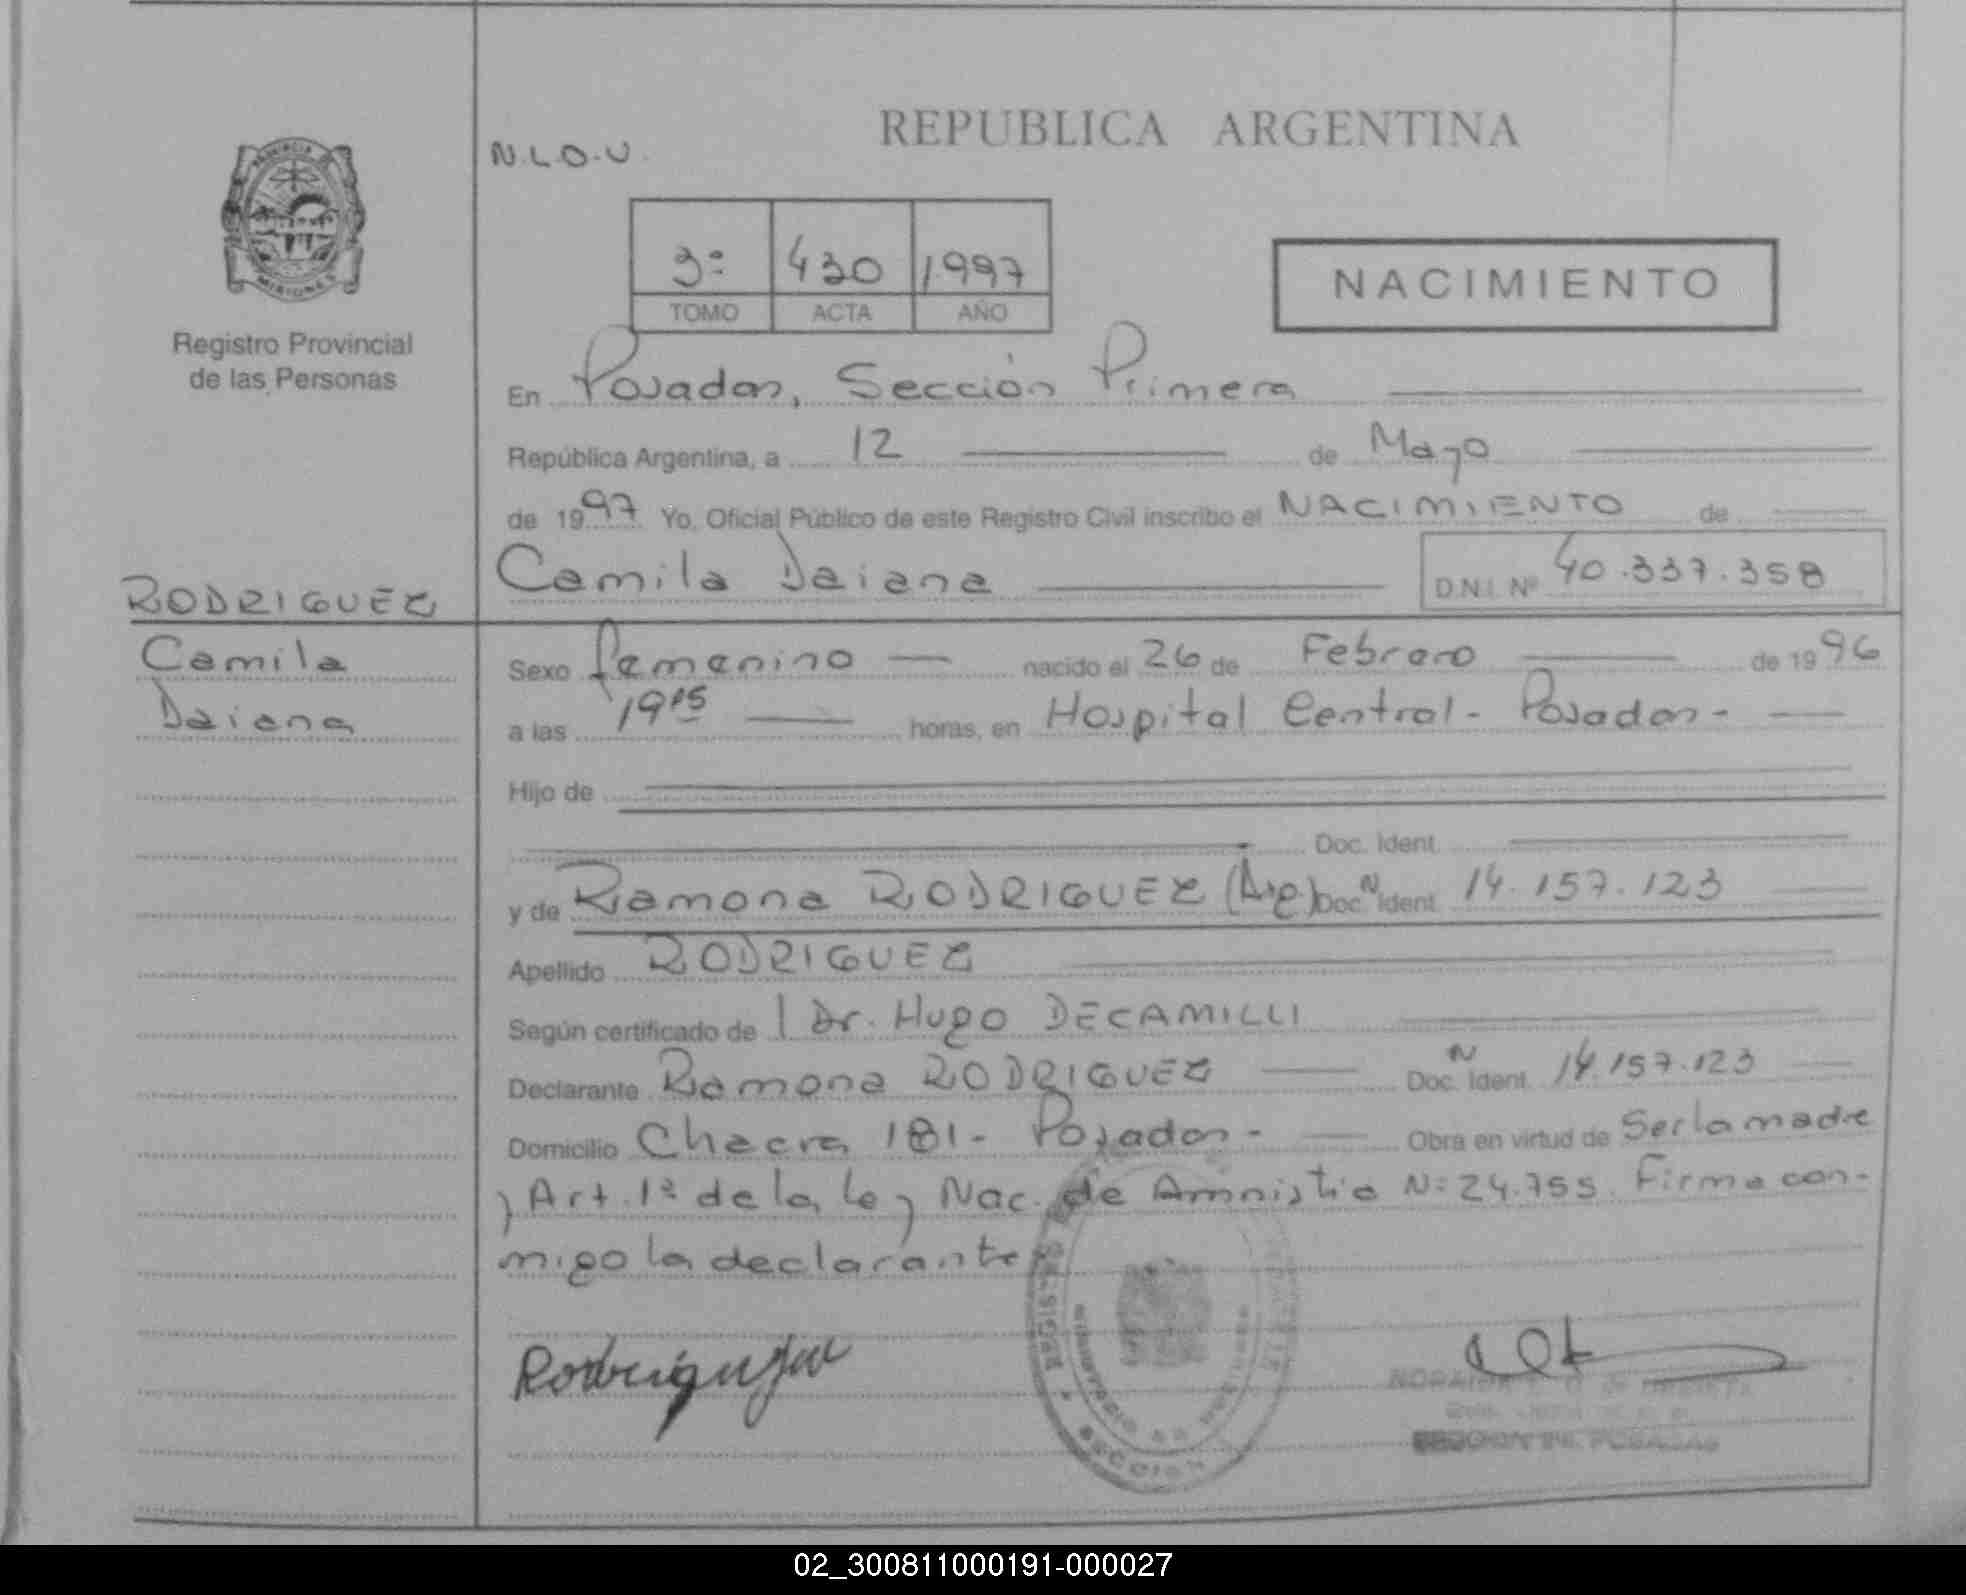 REPUBLICA ARGENTINA
N.L.O.U.
3º 430 1.997
TOMO ACTA AÑO
NACIMIENTO
PROVINCIA DE
MISIONES
Registro Provincial
de las Personas
En Posadas, Sección Primera
República Argentina, a 12 de Mayo
de 1997 Yo, Oficial Público de este Registro Civil inscribo el NACIMIENTO de
Camila Daiana D.N.I. Nº 40.337.358
RODRIGUEZ
Camila
Daiana
Sexo femenino nacido el 26 de Febrero de 1996
a las 19 15 horas, en Hospital Central - Posadas -
Hijo de
Doc. Ident.
y de Ramona RODRIGUEZ (Arg.) Doc. N Ident. 14.157.123
Apellido RODRIGUEZ
Según certificado de Dr. Hugo DECAMILLI
Declarante Ramona RODRIGUEZ Doc. N Ident. 14.157.123
Domicilio Chacra 181 - Posadas - Obra en virtud de Ser la madre
y Art. 1º de la Ley Nac. de Amnistia Nº 24.755. Firma con-
migo la declarante
SECCION POSADAS
02_300811000191-000027